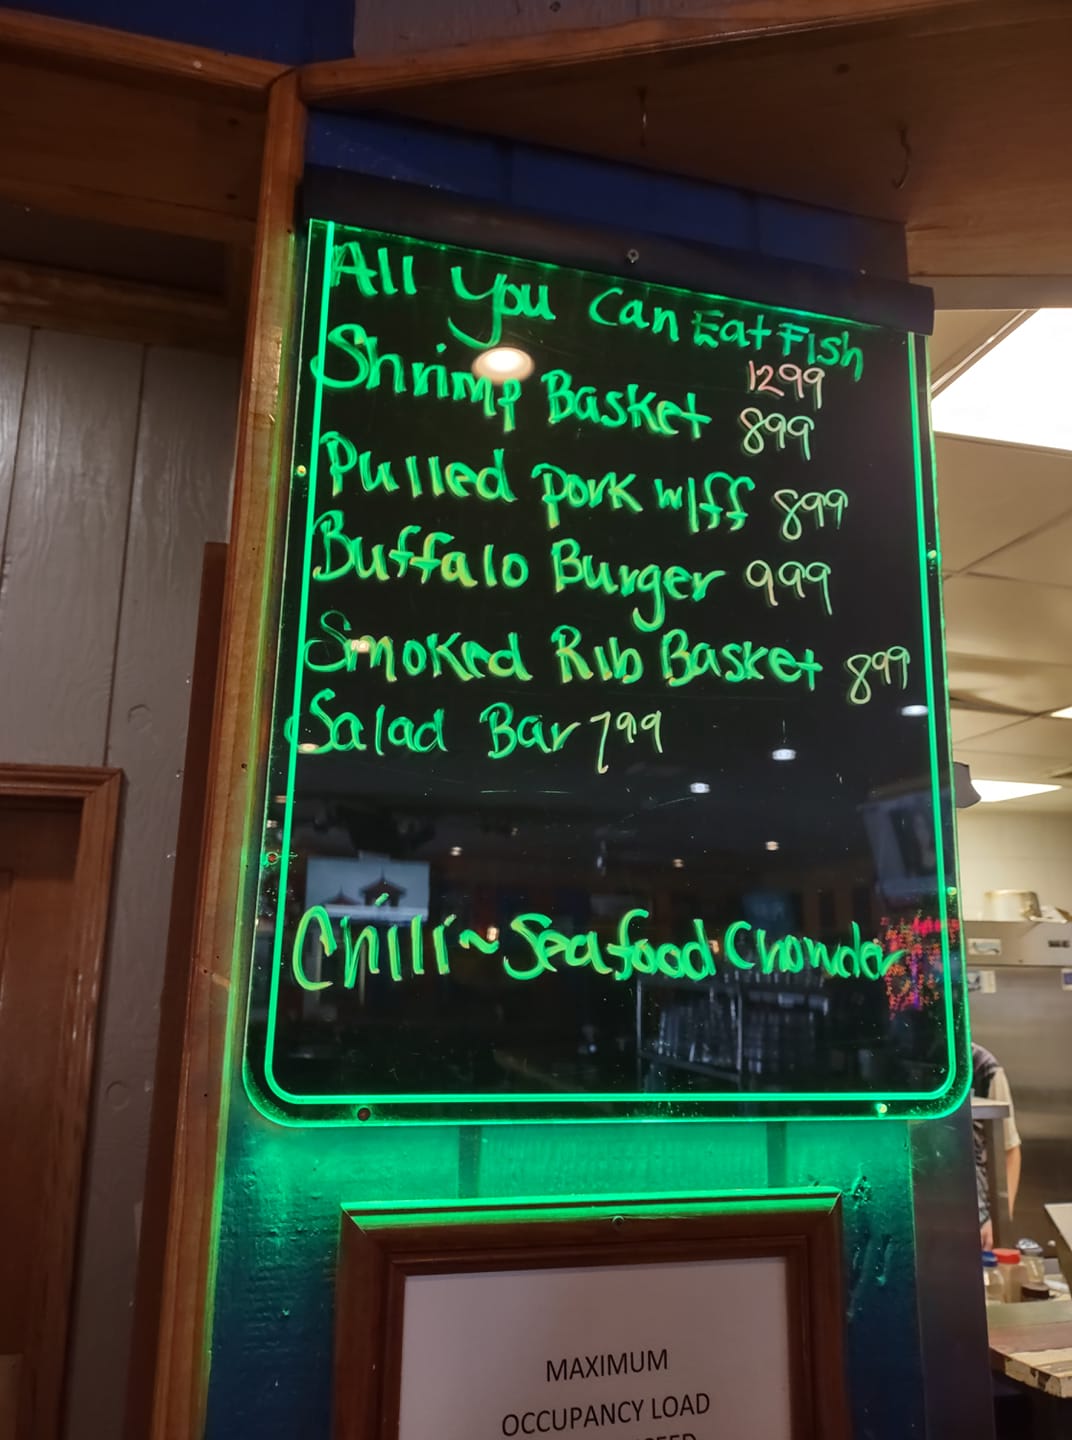 All You Can Eat Fish
1299
Shrimp Basket 899
Pulled Pork w/ff 899
Buffalo Burger 999
Smoked Rib Basket 899
Salad Bar 799
Chili ~ Seafood Chowder
MAXIMUM
OCCUPANCY LOAD